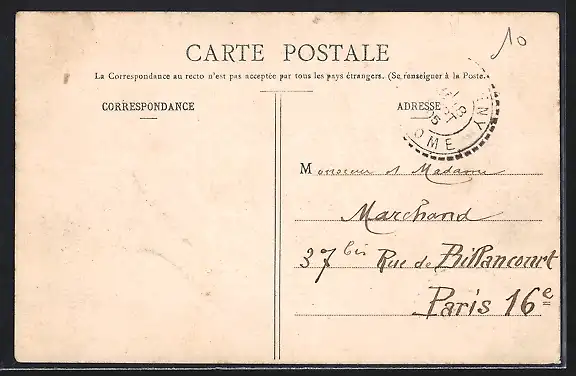 10
CARTE POSTALE
La Correspondance au recto n'est pas acceptée par tous les pays étrangers. (Se renseigner à la Poste.)
CORRESPONDANCE
ADRESSE
NY
18
05
OME
Monsieur et Madame
Marchand
37 bis Rue de Billancourt
Paris 16e